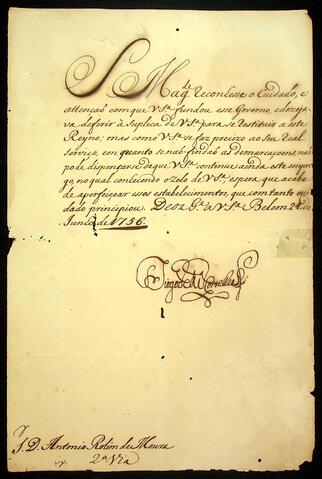 S. Mag.de Reconhese o Cuidado, e
attencaõ com que V S.a fundou esse Governo, e dezeja
va deferir á suplica de V S.a para se Restituir a este
Reyno; mas como V S.a se faz precizo ao seu Real
serviço, em quanto se naõ findaõ as demarcaçoens, naõ
pode dispensarse de que V S.a continue ainda este empre
go, no qual conhecendo o zelo de V S.a, espera que acabe
de aperfeiçoar esses estabelecimentos, que com tanto cui
dado principiou. Deos G.e a V S.a Belem 24 de
Junho de 1756.
Diogo de M.ça Corte Rl.
S. D. Antonio Rolim de Moura
2.a Via